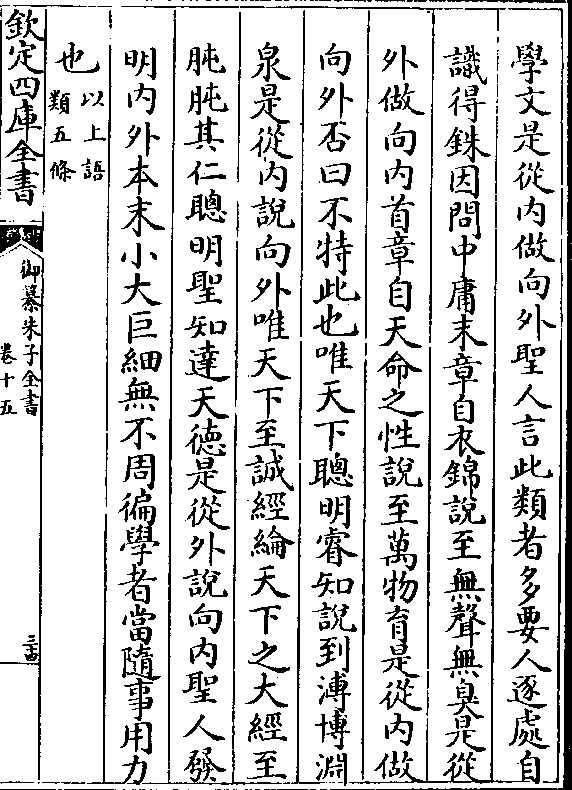 學文是從内做向外聖人言此類者多要人逐處自
識得銖因問中庸末章自衣錦說至無聲無臭是從
外做向内首章自天命之性說至萬物育是從内做
向外否曰不特此也唯天下聰明睿知說到溥博淵
泉是從内說向外唯天下至誠經綸天下之大經至
肫肫其仁聰明聖知達天德是從外說向内聖人發
明内外本末小大巨細無不周徧學者當隨事用力
也以上語
類五條
欽定四庫全書
御纂朱子全書
卷十五
三十四